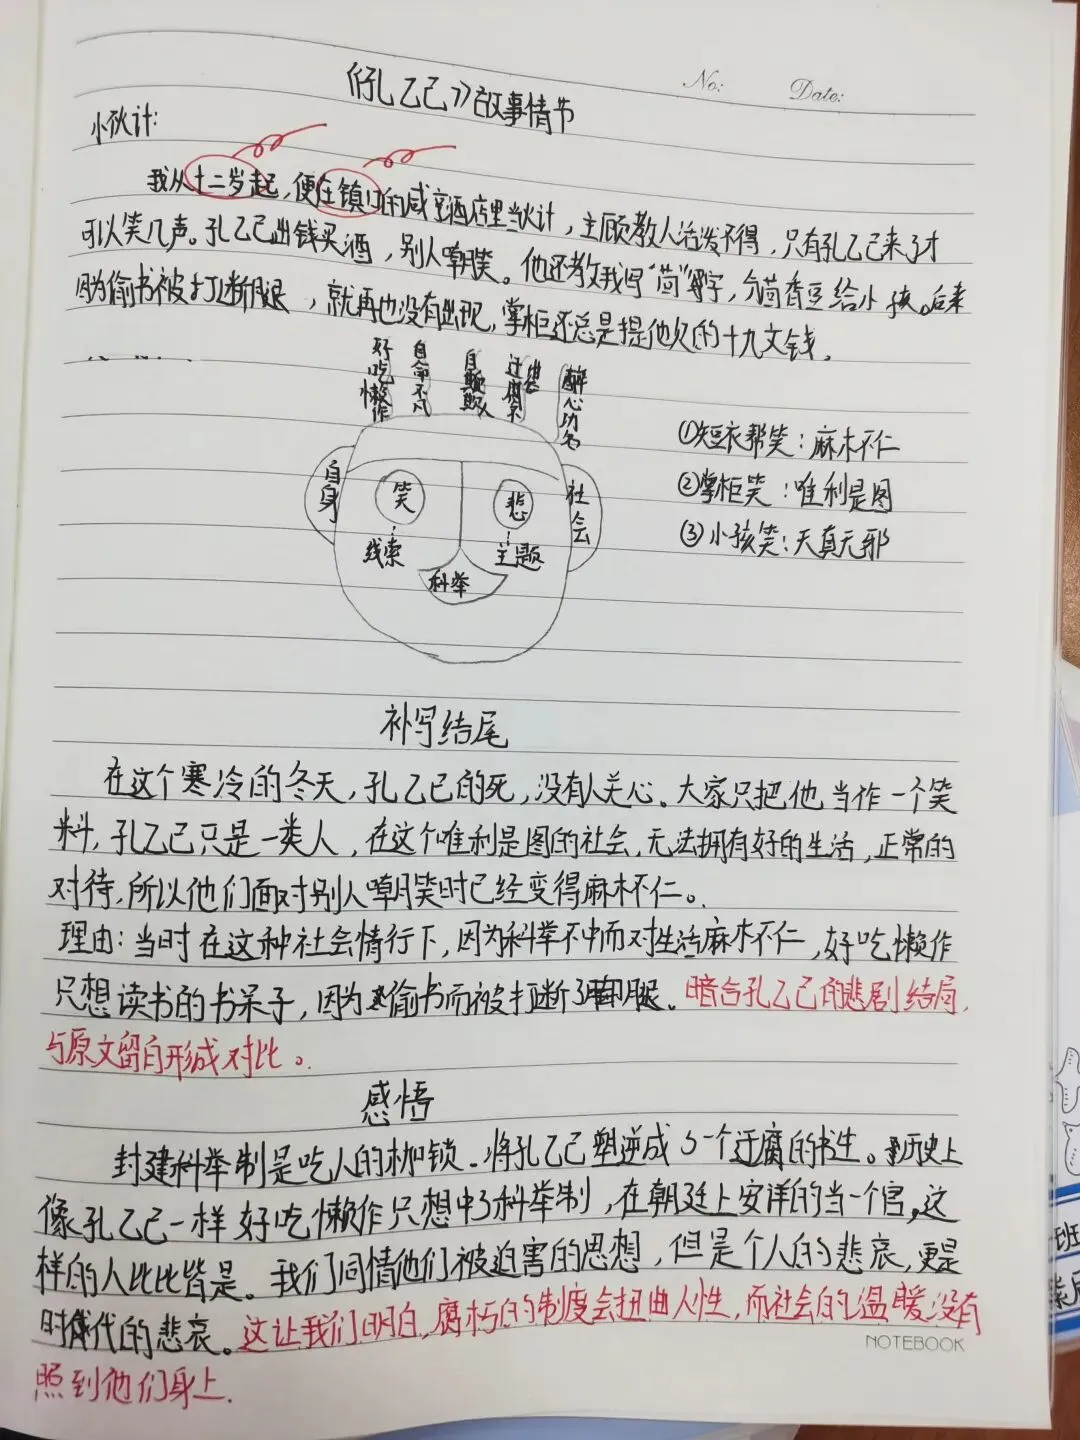 No: Date:
《孔乙己》故事情节
小伙计:
我从十二岁起,便在镇口的咸亨酒店里当伙计,主顾教人活泼不得,只有孔乙己来了才
可以笑几声。孔乙己出钱买酒,别人嘲笑。他还教我写“茴”字,分茴香豆给小孩。后来
因为偷书被打断腿,就再也没有出现,掌柜还总是提他欠的十九文钱。
好吃懒作
自命不凡
自欺欺人
迂腐不
醉心功名
自身
笑
悲
社会
线索
主题
科举
①短衣帮笑:麻木不仁
②掌柜笑:唯利是图
③小孩笑:天真无邪
补写结尾
在这个寒冷的冬天,孔乙己的死,没有人关心。大家只把他当作一个笑
料,孔乙己只是一类人,在这个唯利是图的社会,无法拥有好的生活,正常的
对待,所以他们面对别人嘲笑时已经变得麻木不仁。
理由:当时在这种社会情行下,因为科举不中而对生活麻木不仁,好吃懒作
只想读书的书呆子,因为偷书而被打断了腿。暗合孔乙己的悲剧结局,
与原文留白形成对比。
感悟
封建科举制是吃人的枷锁。将孔乙己塑逆成了一个迂腐的书生。历史上
像孔乙己一样好吃懒作只想中了科举制,在朝廷上安详的当一个官,这
样的人比比皆是。我们同情他们被迫害的思想,但是个人的悲哀,更是
时代的悲哀。这让我们明白,腐朽的制度会扭曲人性,而社会的温暖没有
照到他们身上.
NOTEBOOK
班